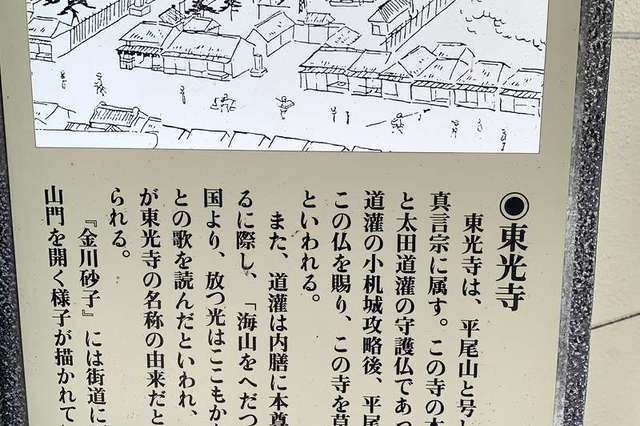 ◉東光寺
東光寺は、平尾山と号し
真言宗に属す。この寺の本
と太田道灌の守護仏であっ
道灌の小机城攻略後、平尾
この仏を賜り、この寺を草
といわれる。
また、道灌は内膳に本尊
るに際し、「海山をへだつ
国より、放つ光はここもか
との歌を読んだといわれ、
が東光寺の名称の由来だと
られる。
『金川砂子』には街道に
山門を開く様子が描かれて